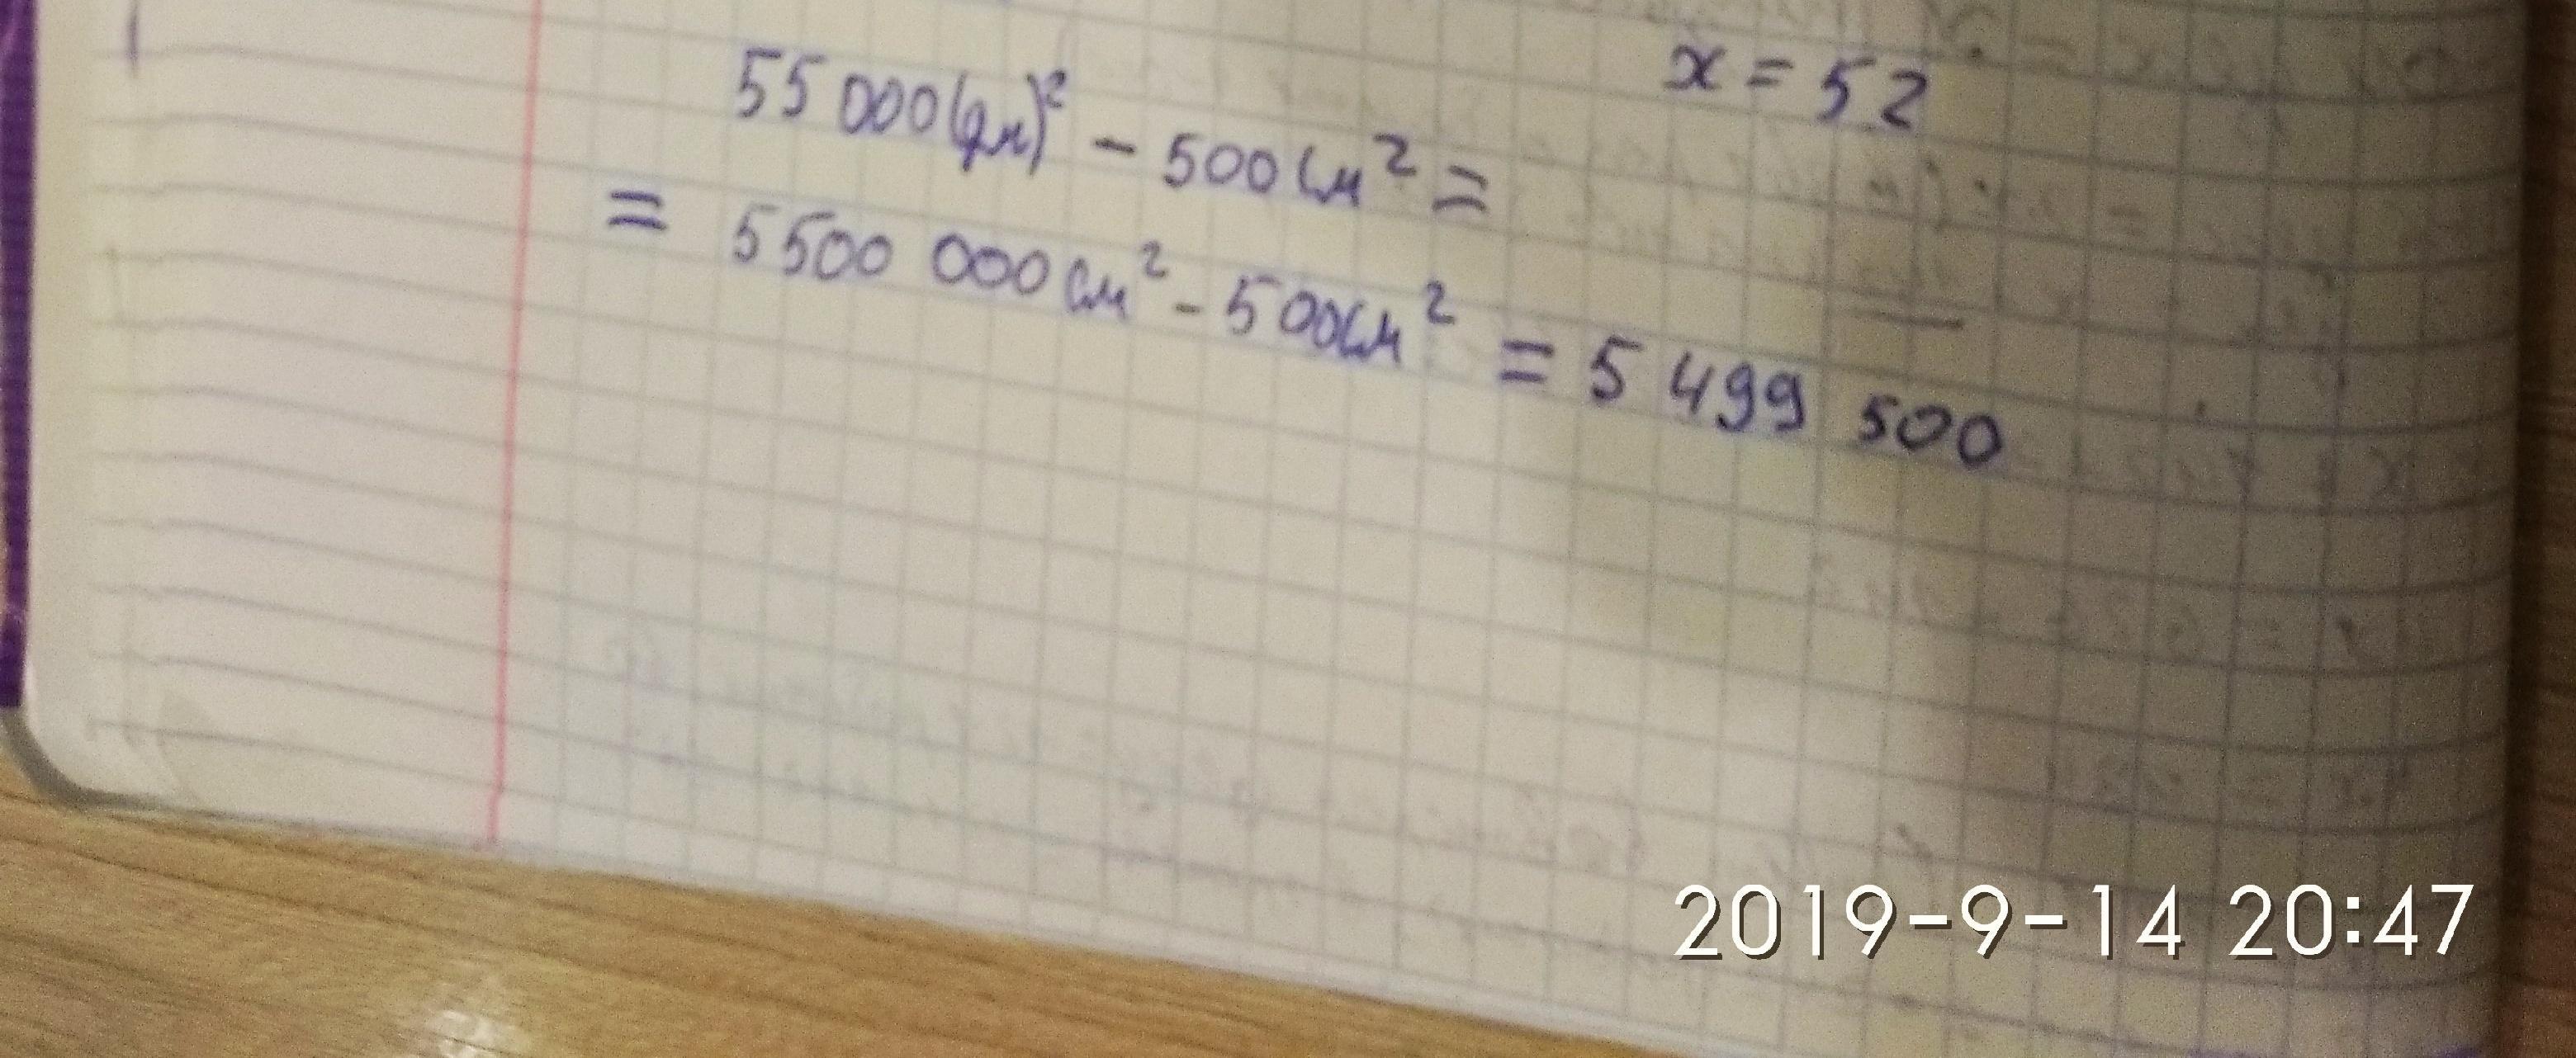 x = 52
55 000(дм)² - 500см² =
= 5500 000см² - 500см² = 5 499 500
2019-9-14 20:47